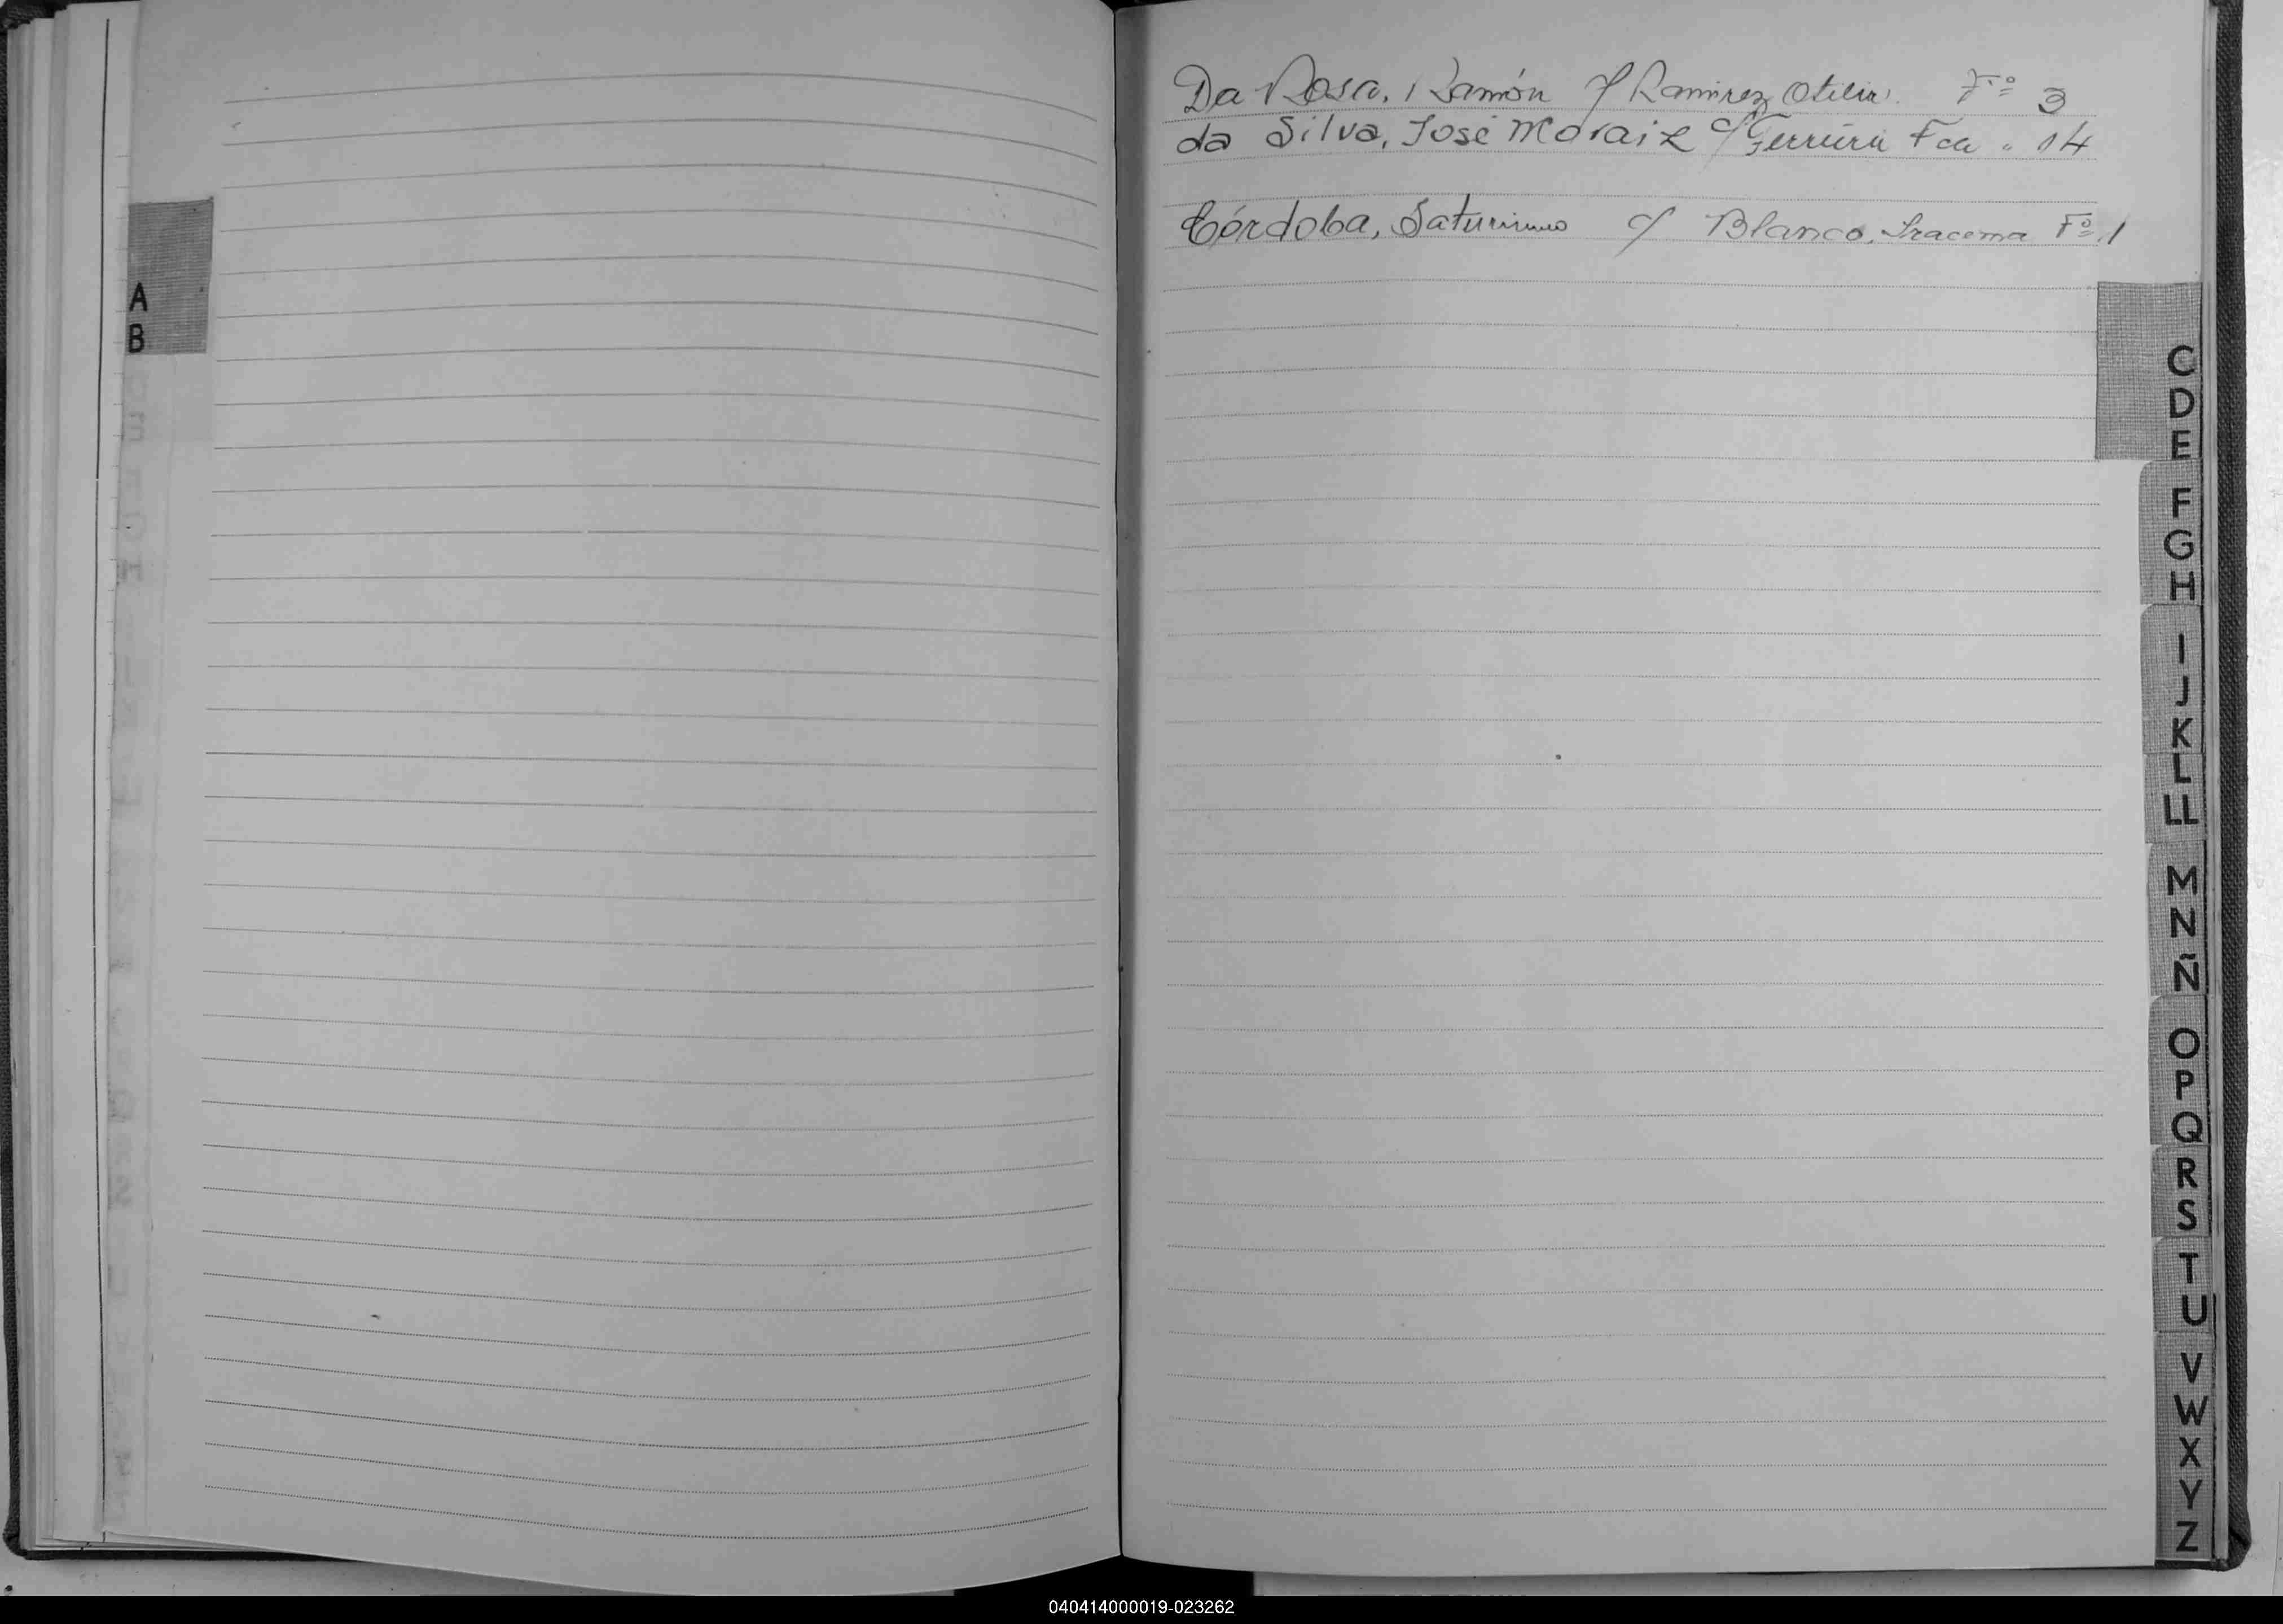 A
B
Da Rosa, Ramón c/ Ramirez Otilia. Fº 3
da Silva, José Moraiz c/ Ferreira Fca " 14
Córdoba, Saturnino c/ Blanco, Iracema Fº 1
C
D
E
F
G
H
I
J
K
L
LL
M
N
Ñ
O
P
Q
R
S
T
U
V
W
X
Y
Z
040414000019-023262